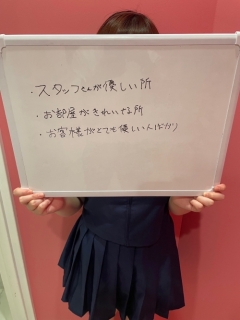 ・スタッフさんが優しい所
・お部屋がきれいな所
・お客様がとても優しい人ばかり